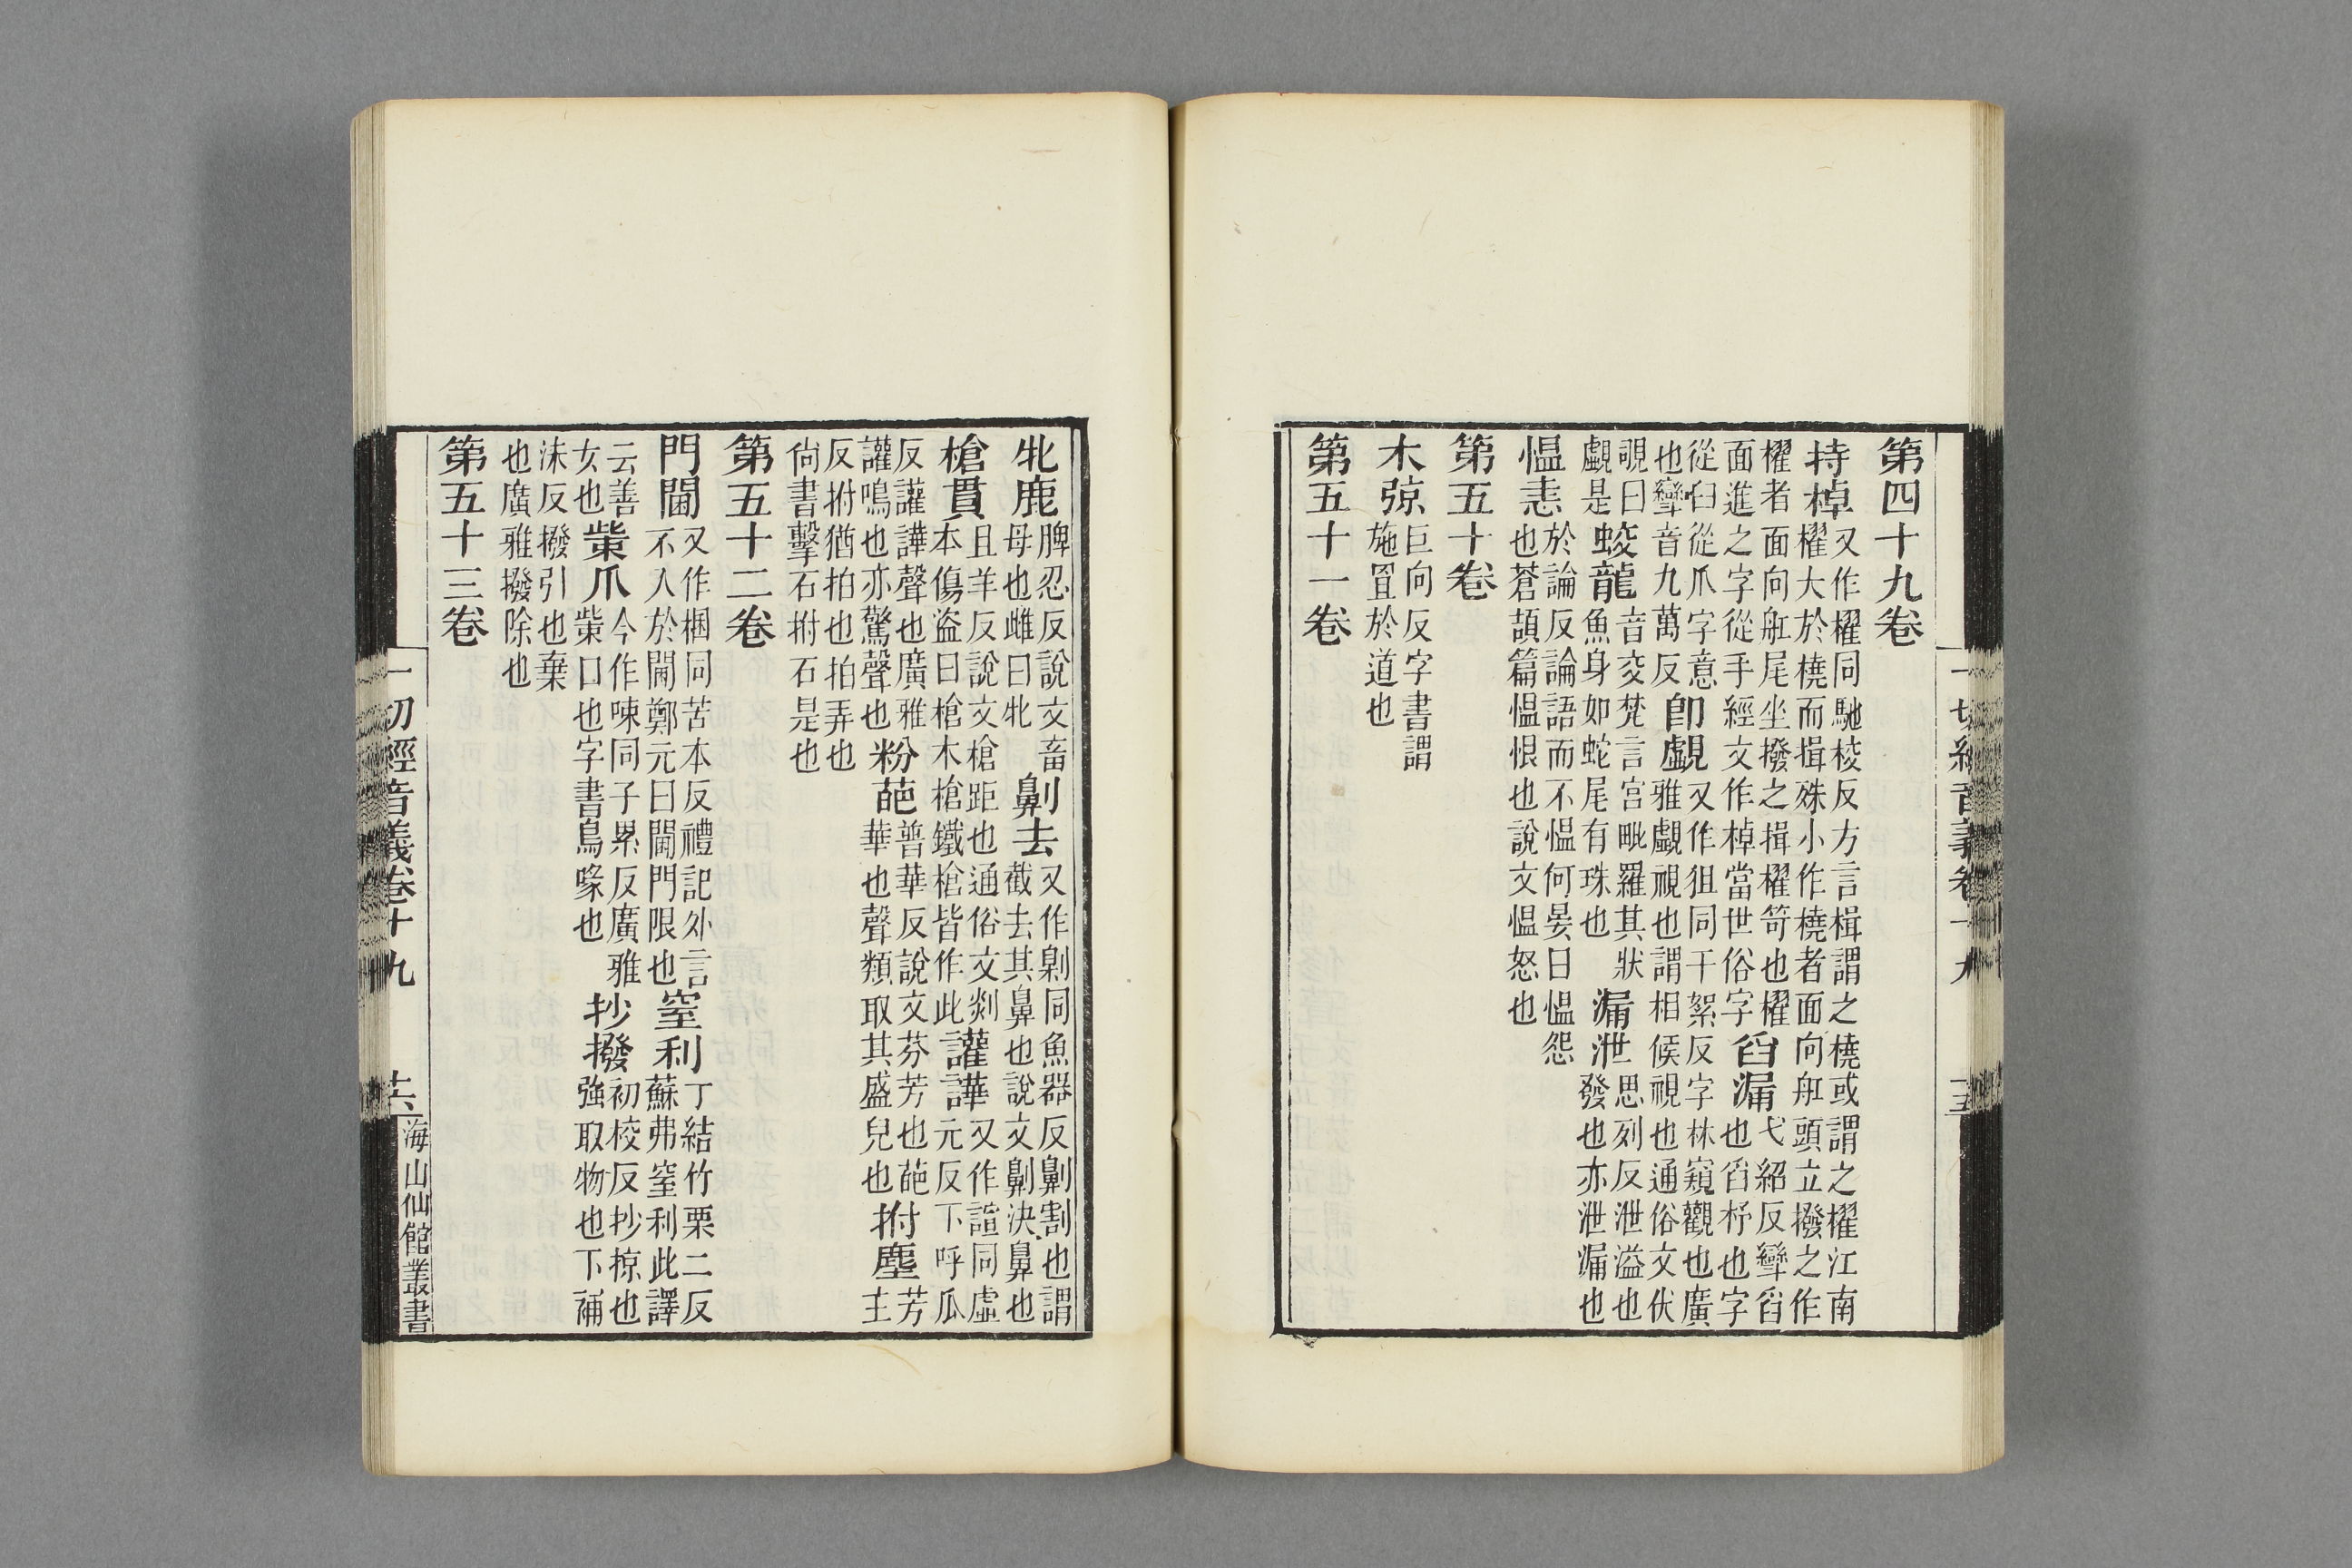 一切經音義卷十九
十五
第四十九卷
持棹
又作櫂同馳挍反方言楫謂之橈或謂之櫂江南
櫂大於橈而揖殊小作橈者面向舡頭立撥之作
櫂者面向舡尾坐撥之揖櫂笴也櫂
面進之字從手經文作棹當世俗字
舀漏
弋紹反㪻舀
也舀杼也字
從臼從爪字意
也㪻音九萬反
卽覰
又作狙同千絮反字林窺觀也廣
雅覰視也謂相候視也通俗文伏
覗曰
覰是
蛟龍
音交梵言宮毗羅其狀
魚身如蛇尾有珠也
漏泄
思列反泄溢也
發也亦泄漏也
慍恚
於論反論語而不慍何晏曰慍怨
也蒼頡篇慍恨也說文慍怒也
第五十卷
木弶
巨向反字書謂
施罝於道也
第五十一卷
牝鹿
脾忍反說文畜
母也雌曰牝
劓去
又作㓷同魚器反劓割也謂
截去其鼻也說文劓決鼻也
槍貫
且羊反說文槍距也通俗文剡
本傷盜曰槍木槍鐵槍皆作此
讙譁
又作諠同虛
元反下呼瓜
反讙譁聲也廣雅
讙鳴也亦驚聲也
粉葩
普華反說文芬芳也葩
華也聲類取其盛皃也
拊塵
芳
主
反拊猶拍也拍弄也
尙書擊石拊石是也
第五十二卷
門閫
又作梱同苦本反禮記外言
不入於閫鄭元曰閫門限也
窒利
丁結竹栗二反
蘇弗窒利此譯
云善
女也
㭰爪
今作㖩同子累反廣雅
㭰口也字書鳥喙也
抄撥
初校反抄掠也
強取物也下補
沬反撥引也棄
也廣雅撥除也
第五十三卷
一切經音義卷十九
十六
海山仙館叢書